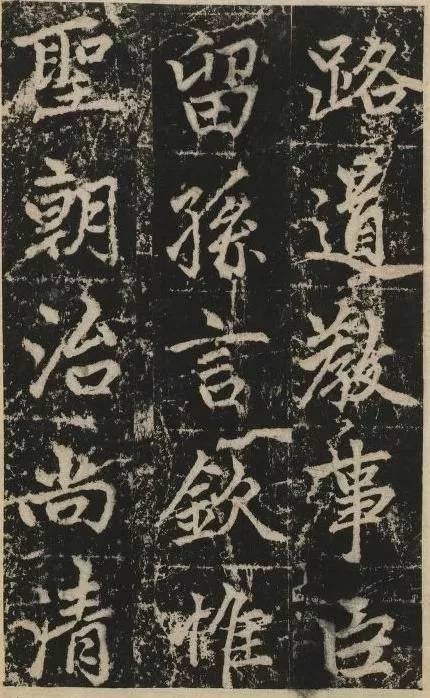 路道教事臣
留孫言欽惟
聖朝治尚清